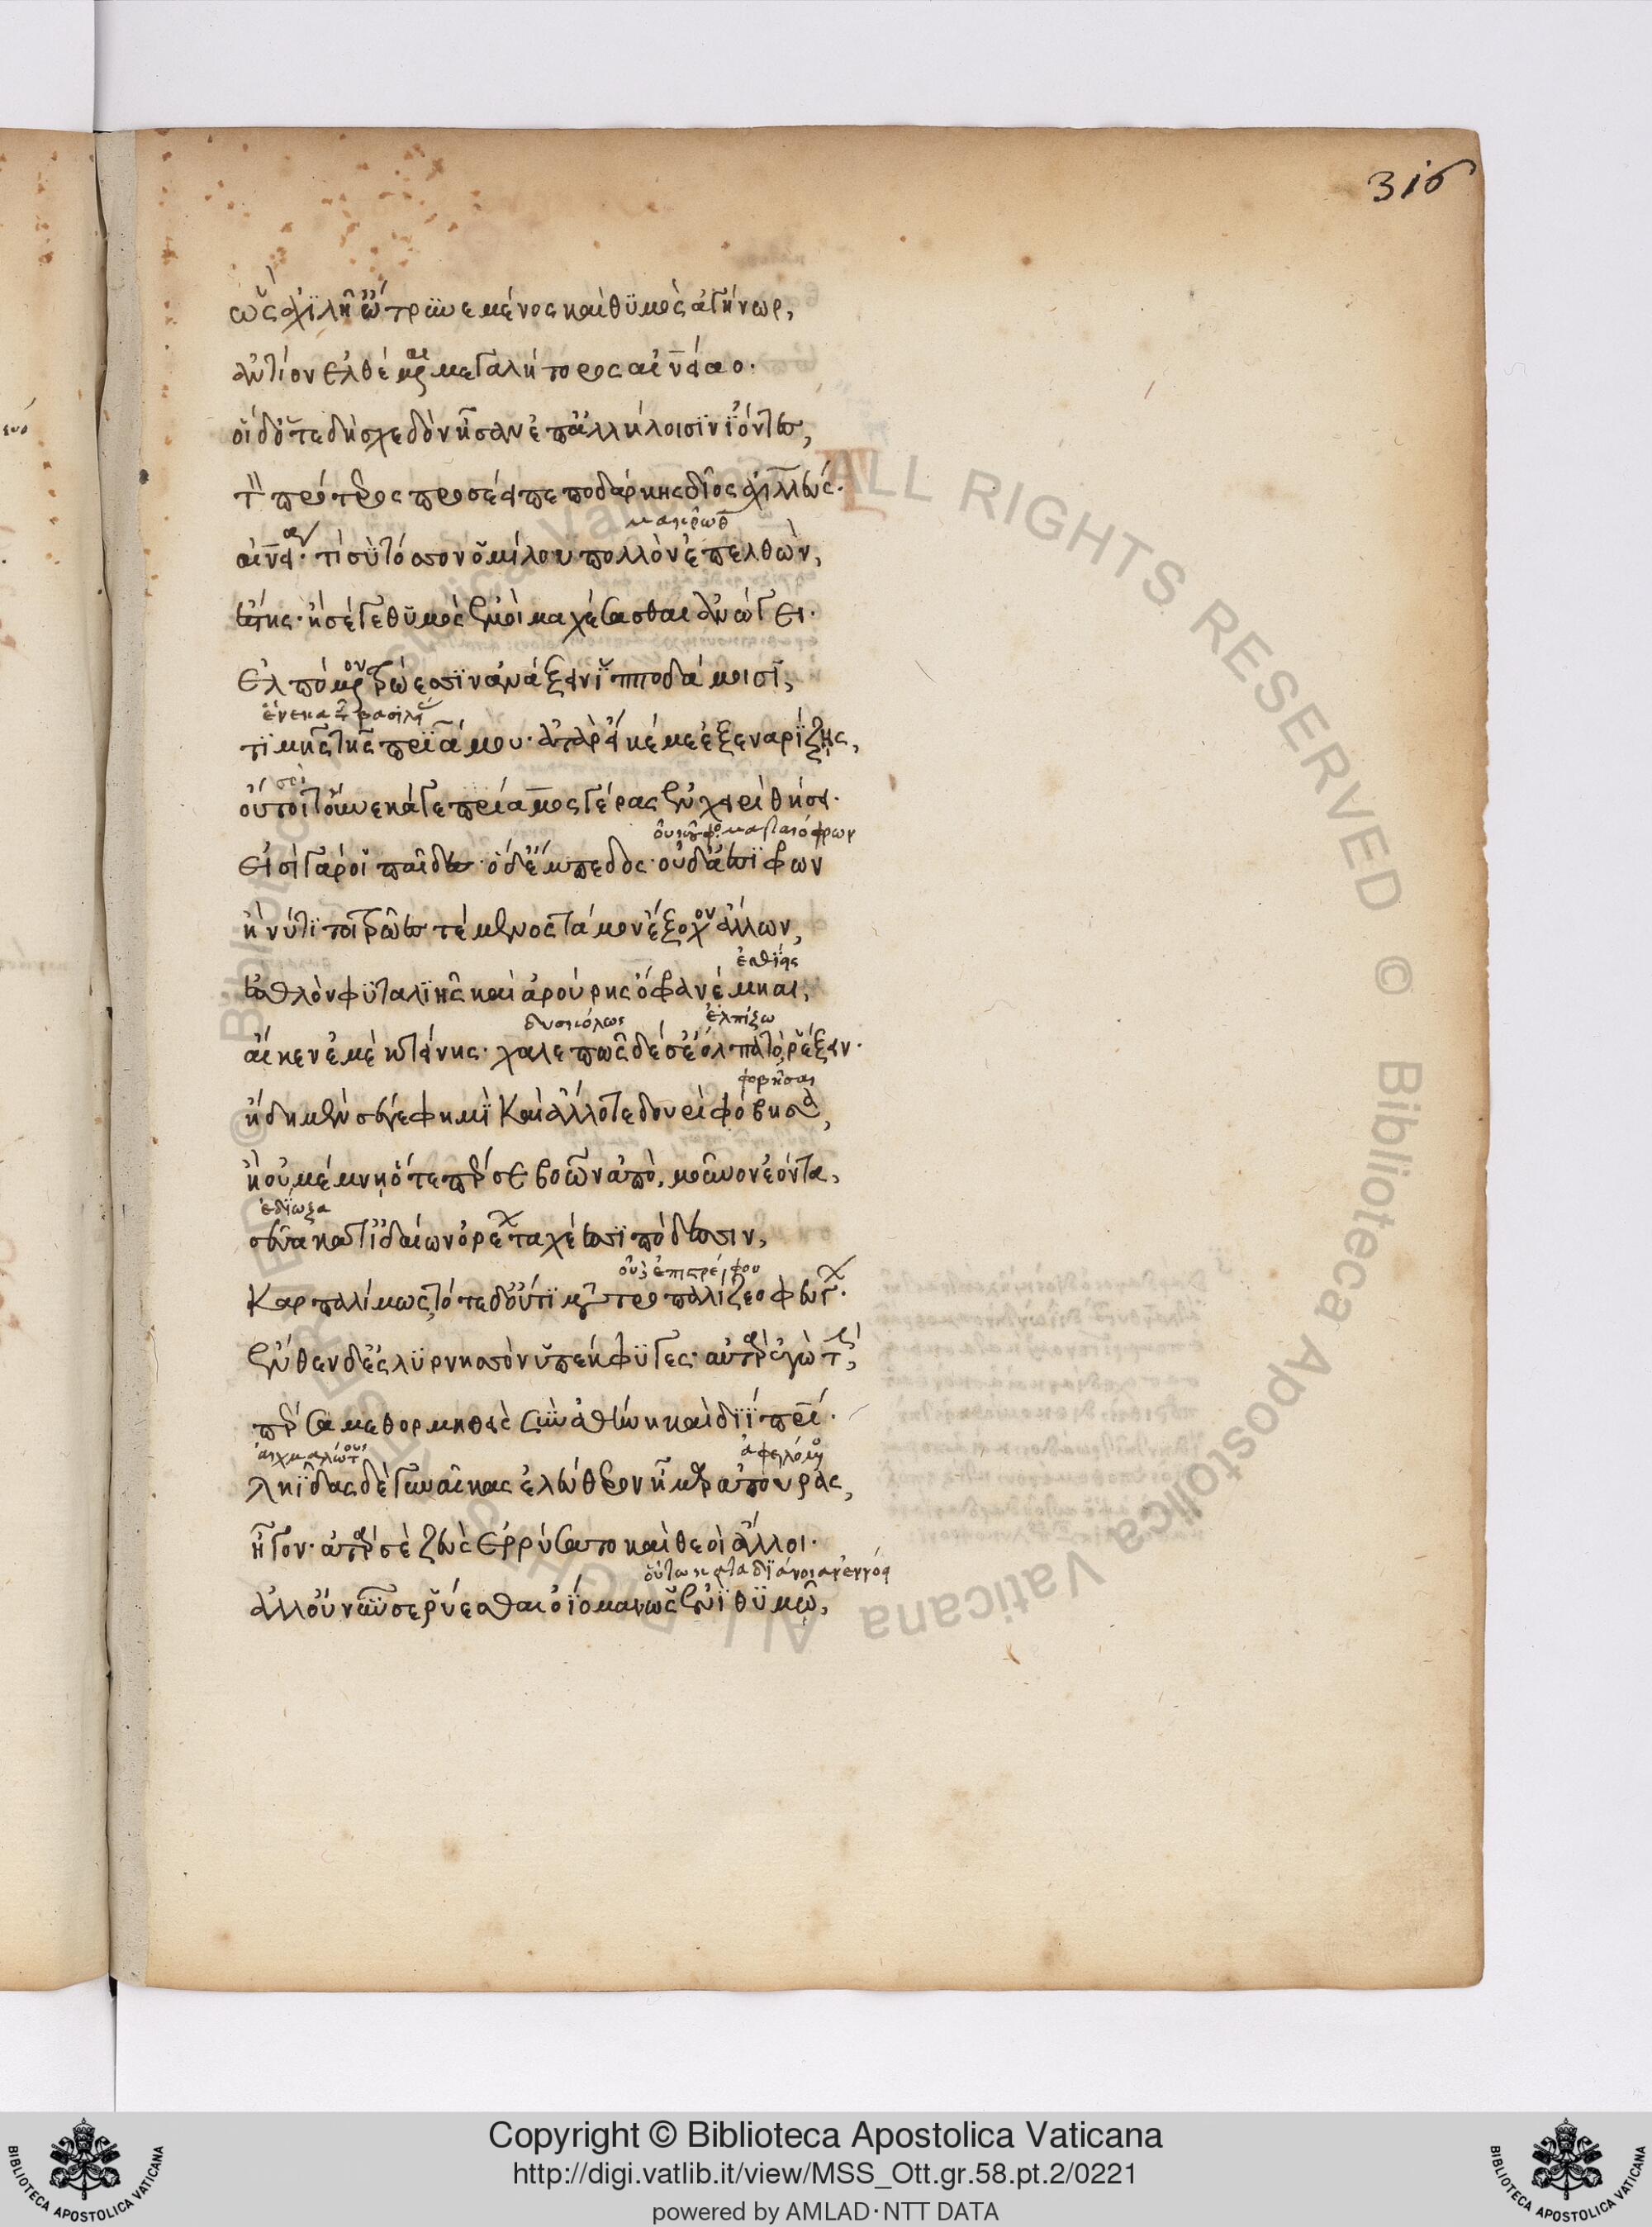 316
ὣς ἀχιλῆ ὤτρυνε μένος καὶ θυμὸς ἀγήνωρ,
ἀντίον ἐλθέμεναι μεγαλήτορος αἰνείαο.
οἱ δ' ὅτε δὴ σχεδὸν ἦσαν ἐπ' ἀλλήλοισιν ἰόντες,
τὸν πρότερος προσέειπε ποδάρκης δῖος ἀχιλλεύς.
μακρόθεν
αἰνεία· τί σὺ τόσσον ὁμίλου πολλὸν ἐπελθὼν,
ἔστης· ἦ σέ γε θυμὸς ἐμοὶ μαχέσασθαι ἀνώγει.
ἐλπόμενον τρώεσσιν ἀνάξειν ἱπποδάμοισι,
ἕνεκα τῆς βασιλείας
τιμῆς τῆς πριάμου· ἀτὰρ εἴ κέν με ἐξεναρίζῃς,
σοι
οὔ τοι τούνεκά γε πρίαμος γέρας ἐν χειρὶ θήσει.
ματαιόφρων
εἰσὶ γάρ οἱ παῖδες· ὁ δ' ἔμπεδος· οὐδ' ἀεσίφρων
ἦ νύ τί τοι τρῶες τέμενος τάμον ἔξοχον ἄλλων,
ἐσθίῃς
ἐσθλὸν φυταλιῆς καὶ ἀρούρης ὄφρα νέμηαι,
δυσκόλως ἐλπίζω
αἴ κεν ἐμὲ κτείνῃς· χαλεπῶς δέ σ' ἔολπα τὸ ῥέξειν.
φοβῆσαι
ἤδη μὲν σέ γέ φημι καὶ ἄλλοτε δουρὶ φόβησα,
ἢ οὐ μέμνῃ ὅτε πέρ σε βοῶν ἄπο, μοῦνον ἐόντα,
ἐδίωξα
σεῦα κατ' ἰδαίων ὀρέων ταχέεσσι πόδεσσιν,
οὐκ ἐπιστρέφου
καρπαλίμως, τότε δ' οὔτι μετατροπαλίζεο φεύγων.
ἔνθεν δ' ἐς λυρνησσὸν ὑπέκφυγες· αὐτὰρ ἐγὼ τὴν,
πέρσα μεθορμηθεὶς σὺν ἀθήνῃ καὶ διὶ πατρί.
αἰχμαλώτους ἀφελόμενος
ληϊάδας δὲ γυναῖκας ἐλεύθερον ἦμαρ ἀπούρας,
ἦγον· ἀτὰρ σὲ ζεὺς ἐρρύσατο καὶ θεοὶ ἄλλοι.
ἀλλ' οὐ νῦν σε ῥύεσθαι ὀΐομαι ὡς ἐνὶ θυμῷ,
Copyright © Biblioteca Apostolica Vaticana
http://digi.vatlib.it/view/MSS_Ott.gr.58.pt.2/0221
powered by AMLAD·NTT DATA